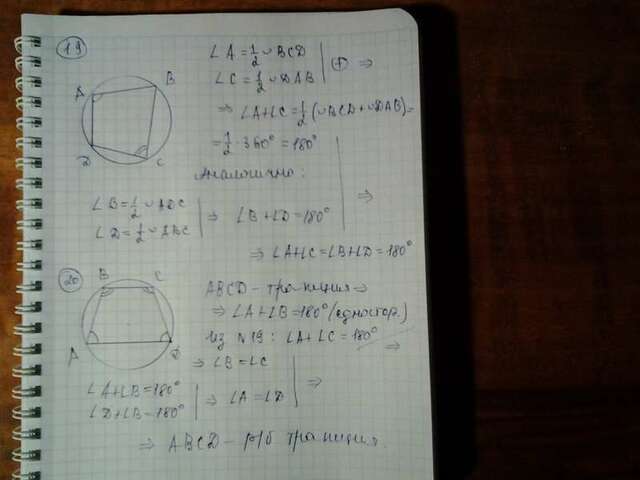 19
∠A = 1/2 ∪BCD
∠C = 1/2 ∪DAB | (+) ⇒
⇒ ∠A+∠C = 1/2 (∪BCD+∪DAB) =
= 1/2 · 360° = 180°
Аналогично:
∠B = 1/2 ∪ADC
∠D = 1/2 ∪ABC | ⇒ ∠B+∠D = 180° | ⇒
⇒ ∠A+∠C = ∠B+∠D = 180°
A B
D C
20
B C
A D
ABCD – трапеция ⇒
⇒ ∠A+∠B = 180° (одностор.)
Из №19: ∠A+∠C = 180° ⇒
⇒ ∠B = ∠C
∠A+∠B = 180°
∠D+∠B = 180° | ⇒ ∠A = ∠D | ⇒
⇒ ABCD – р/б трапеция.